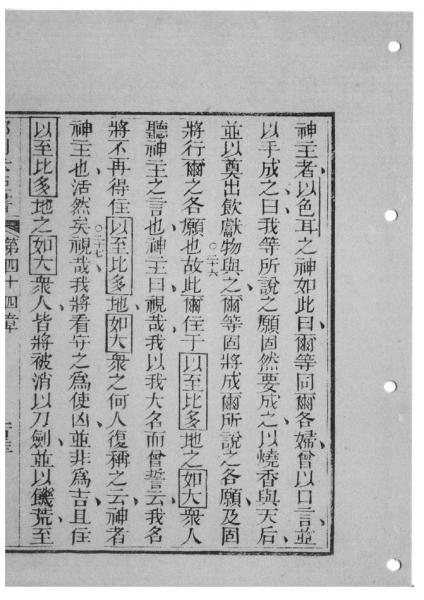 神主者以色耳之神如此曰爾等同爾各婦曾以口言並
以手成之曰我等所說之願固然要成之以燒香與天后
並以奠出飲獻物與之爾等固將成爾所說之各願及固
將行爾之各願也○二十六故此爾住于以至比多地之如大衆人
聽神主之言也神主曰視哉我以我大名而曾誓云我名
將不再得住以至比多地如大衆之何人復稱之云神者
神主也活然矣○二十七視哉我將看守之爲使凶並非爲吉且住
以至比多地之如大衆人皆將被消以刀劍並以饑荒至
第四十四章